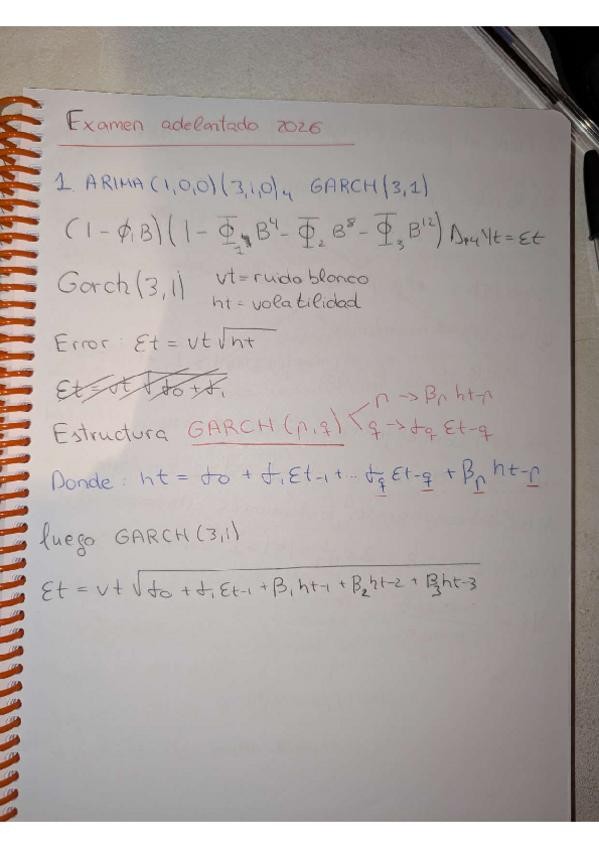 Examen adelantado 2026
1. ARIMA (1,0,0)(3,1,0)₄ GARCH(3,1)
(1 - ϕ₁B)(1 - Φ₁B⁴ - Φ₂B⁸ - Φ₃B¹²) Δ₄Yt = εt
Garch(3,1) vt = ruido blanco
ht = volatilidad
Error: εt = vt √ht
εt = vt √α0 + α1
Estructura GARCH(p,q) p → βp ht-p
q → αq εt-q
Donde: ht = α0 + α1 εt-1 + ... αq εt-q + βp ht-p
luego GARCH(3,1)
εt = vt √α0 + α1 εt-1 + β1 ht-1 + β2 ht-2 + β3 ht-3